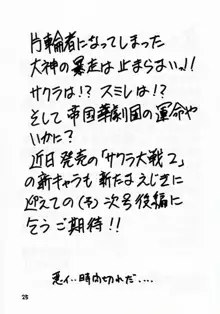 片輪者になってしまった
大神の暴走は止まらまいっ!!
サクラは!? スミレは!?
そして帝国華劇団の運命や
いかに?
近日発売の「サクラ大戦2」
の新キャラも新たまえじきに
迎えての(そ)次号後編に
乞うご期待!!
悪ィ…時間切れだ‥‥
25